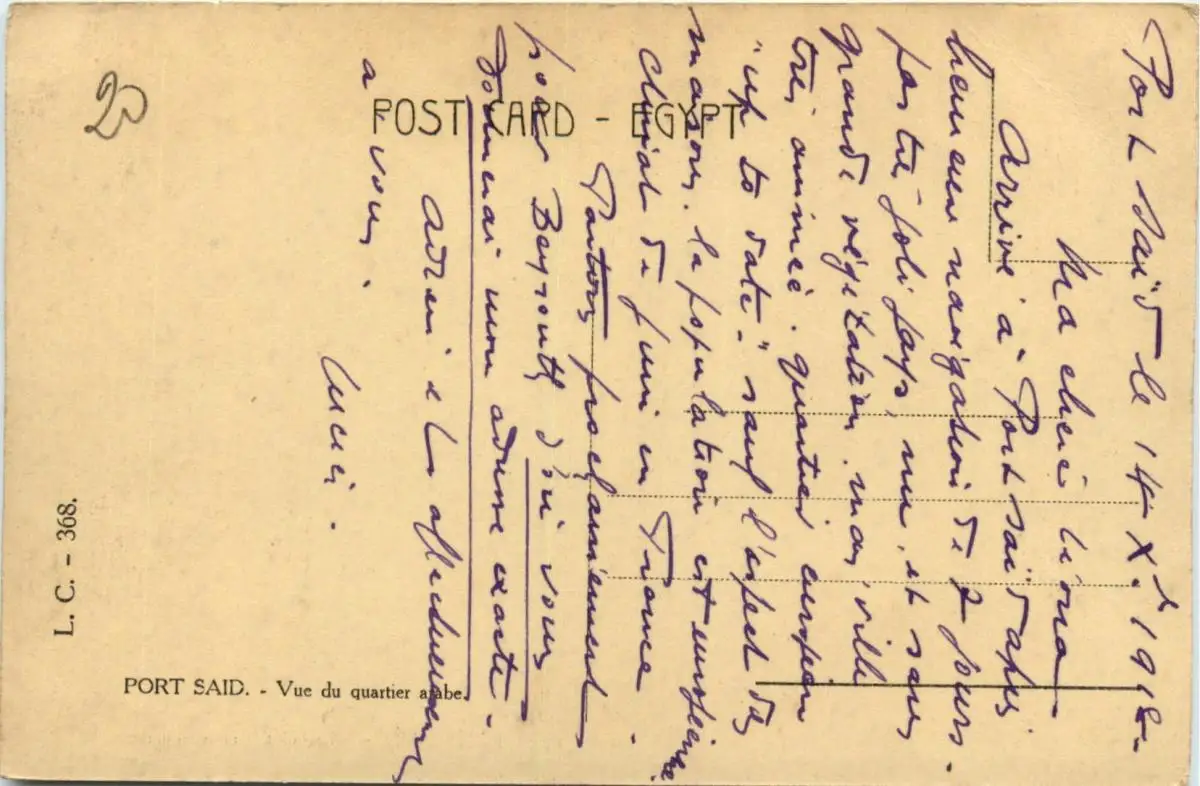 Port Saïd le 14 Xe 1918
Ma chère Léona
Arrivé à Port Saïd après
heureuse navigation de 7 jours.
pas très joli pays, nu, et sans
grande végétation, mais ville
très animée. quartier européen
"up to date" sauf l'aspect des
maisons. la population est
climat de juin en France.
Partons prochainement
pour Beyrouth d'où vous
donnerai mon adresse exacte.
Adieu et affectueusement
a vous.
Lucien.
POST CARD - EGYPT
20
L. C. - 368.
PORT SAID. - Vue du quartier arabe.